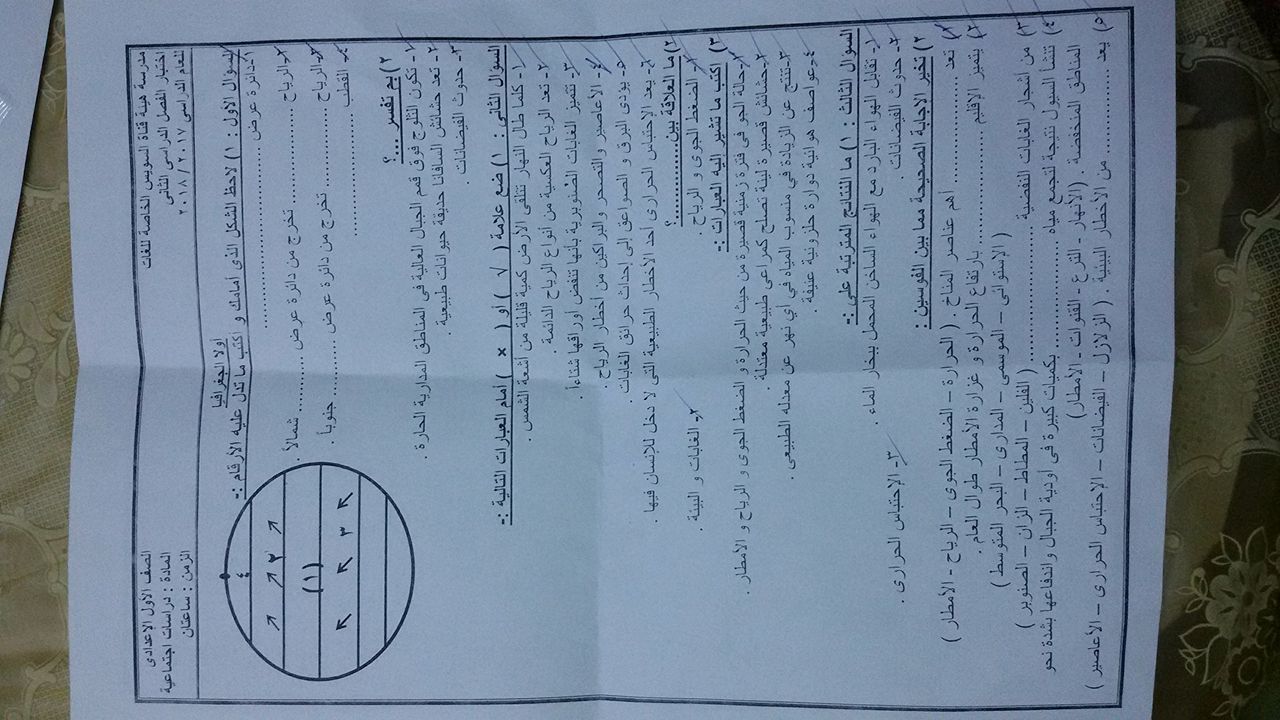 مدرسة هيئة قناة السويس الخاصة للغات
اختبار الفصل الدراسى الثانى
للعام الدراسى ٢٠١٧ / ٢٠١٨
الصف الاول الاعدادى
المادة : دراسات اجتماعية
الزمن : ساعتان
أولا الجغرافيا
السوال الاول : ١) لاحظ الشكل الذى أمامك و أكتب ما تدل عليه الأرقام :-
١-دائرة عرض ..............................
٢-الرياح ................ تخرج من دائرة عرض ................ شمالاً .
٣-الرياح ................ تخرج من دائرة عرض ................ جنوبياً .
٤- القطب ................
٤
٢
(١)
٣
٢) بم تفسر ....؟
١- تكون الثلج فوق قمم الجبال العالية فى المناطق المدارية الحارة .
٢- تعد حشائش السافانا حديقة حيوانات طبيعية .
٣- حدوث الفيضانات .
السوال الثانى : ١) ضع علامة ( √ ) أو ( × ) أمام العبارات التالية :-
١- كلما طال النهار تتلقى الأرض كمية قليلة من أشعة الشمس .
٢- تعد الرياح العكسية من أنواع الرياح الدائمة .
٣- تتميز الغابات الصنوبرية بأنها تنفض أوراقها شتاءاً .
٤- الأعاصير والتصحر والبراكين من أخطار الرياح .
٥- يودى البرق و الصواعق الى احداث حرائق الغابات
٦- يعد الإحتباس الحرارى أحد الأخطار الطبيعية التى لا دخل للإنسان فيها .
٢) ما العلاقة بين ...........؟
١- الضغط الجوى و الرياح
٢- الغابات و البيئة .
٣) اكتب ما تشير اليه العبارات :-
١-حالة الجو فى فترة زمنية قصيرة من حيث الحرارة و الضغط الجوى و الرياح و الأمطار .
٢-حشائش قصيرة لينة تصلح كمراعى طبيعية معتدلة .
٣-تنتج عن الزيادة في منسوب المياه في أي نهر عن معدله الطبيعى .
٤-عواصف هوائية دوارة حلزونية عنيفة .
السوال الثالث : ١) ما النتائج المترتبة على :-
١- تقابل الهواء البارد مع الهواء الساخن المحمل ببخار الماء .
٢- حدوث الفيضانات .
٣- الإحتباس الحرارى .
٢) تخير الاجابة الصحيحة مما بين القوسين :
١) تعد ............ أهم عناصر المناخ . ( الحرارة - الضغط الجوى - الرياح - الأمطار )
٢) يتميز الإقليم ............ بارتفاع الحرارة و غزارة الأمطار طوال العام .
( الإستوائى - الموسمى - المدارى - البحر المتوسط )
٣) من أشجار الغابات النفضية ............ ( الفلين - المطاط - الزان - الصنوبر )
٤) تنشأ السيول نتيجة لتجمع مياه ............ بكميات كبيرة فى أودية الجبال واندفاعها بشدة نحو
المناطق المنخفضة . (الأنهار - الترع - القنوات - الأمطار)
٥) يعد ............ من الأخطار البيئية . ( الزلازل - الفيضانات - الإحتباس الحرارى - الأعاصير )